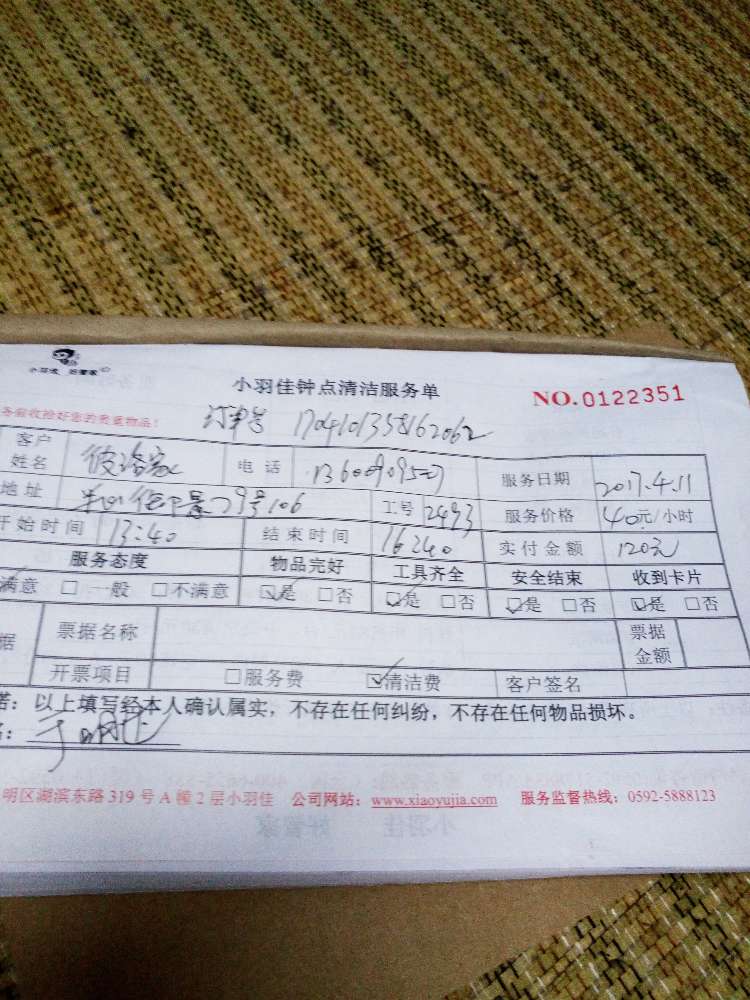 小羽佳 好管家
小羽佳钟点清洁服务单
NO.0122351
务前收拾好您的贵重物品!
订单号
客户姓名 电话 服务日期 2017.4.11
地址 29号106 工号 2493 服务价格 40元/小时
开始时间 13:40 结束时间 16:40 实付金额 120元
服务态度 物品完好 工具齐全 安全结束 收到卡片
满意 □一般 □不满意 ☑是 □否 ☑是 □否 ☑是 □否 ☑是 □否
据 票据名称 票据金额
开票项目 □服务费 ☑清洁费 客户签名
诺:以上填写经本人确认属实,不存在任何纠纷,不存在任何物品损坏。
明区湖滨东路319号A幢2层小羽佳 公司网站:www.xiaoyujia.com 服务监督热线:0592-5888123